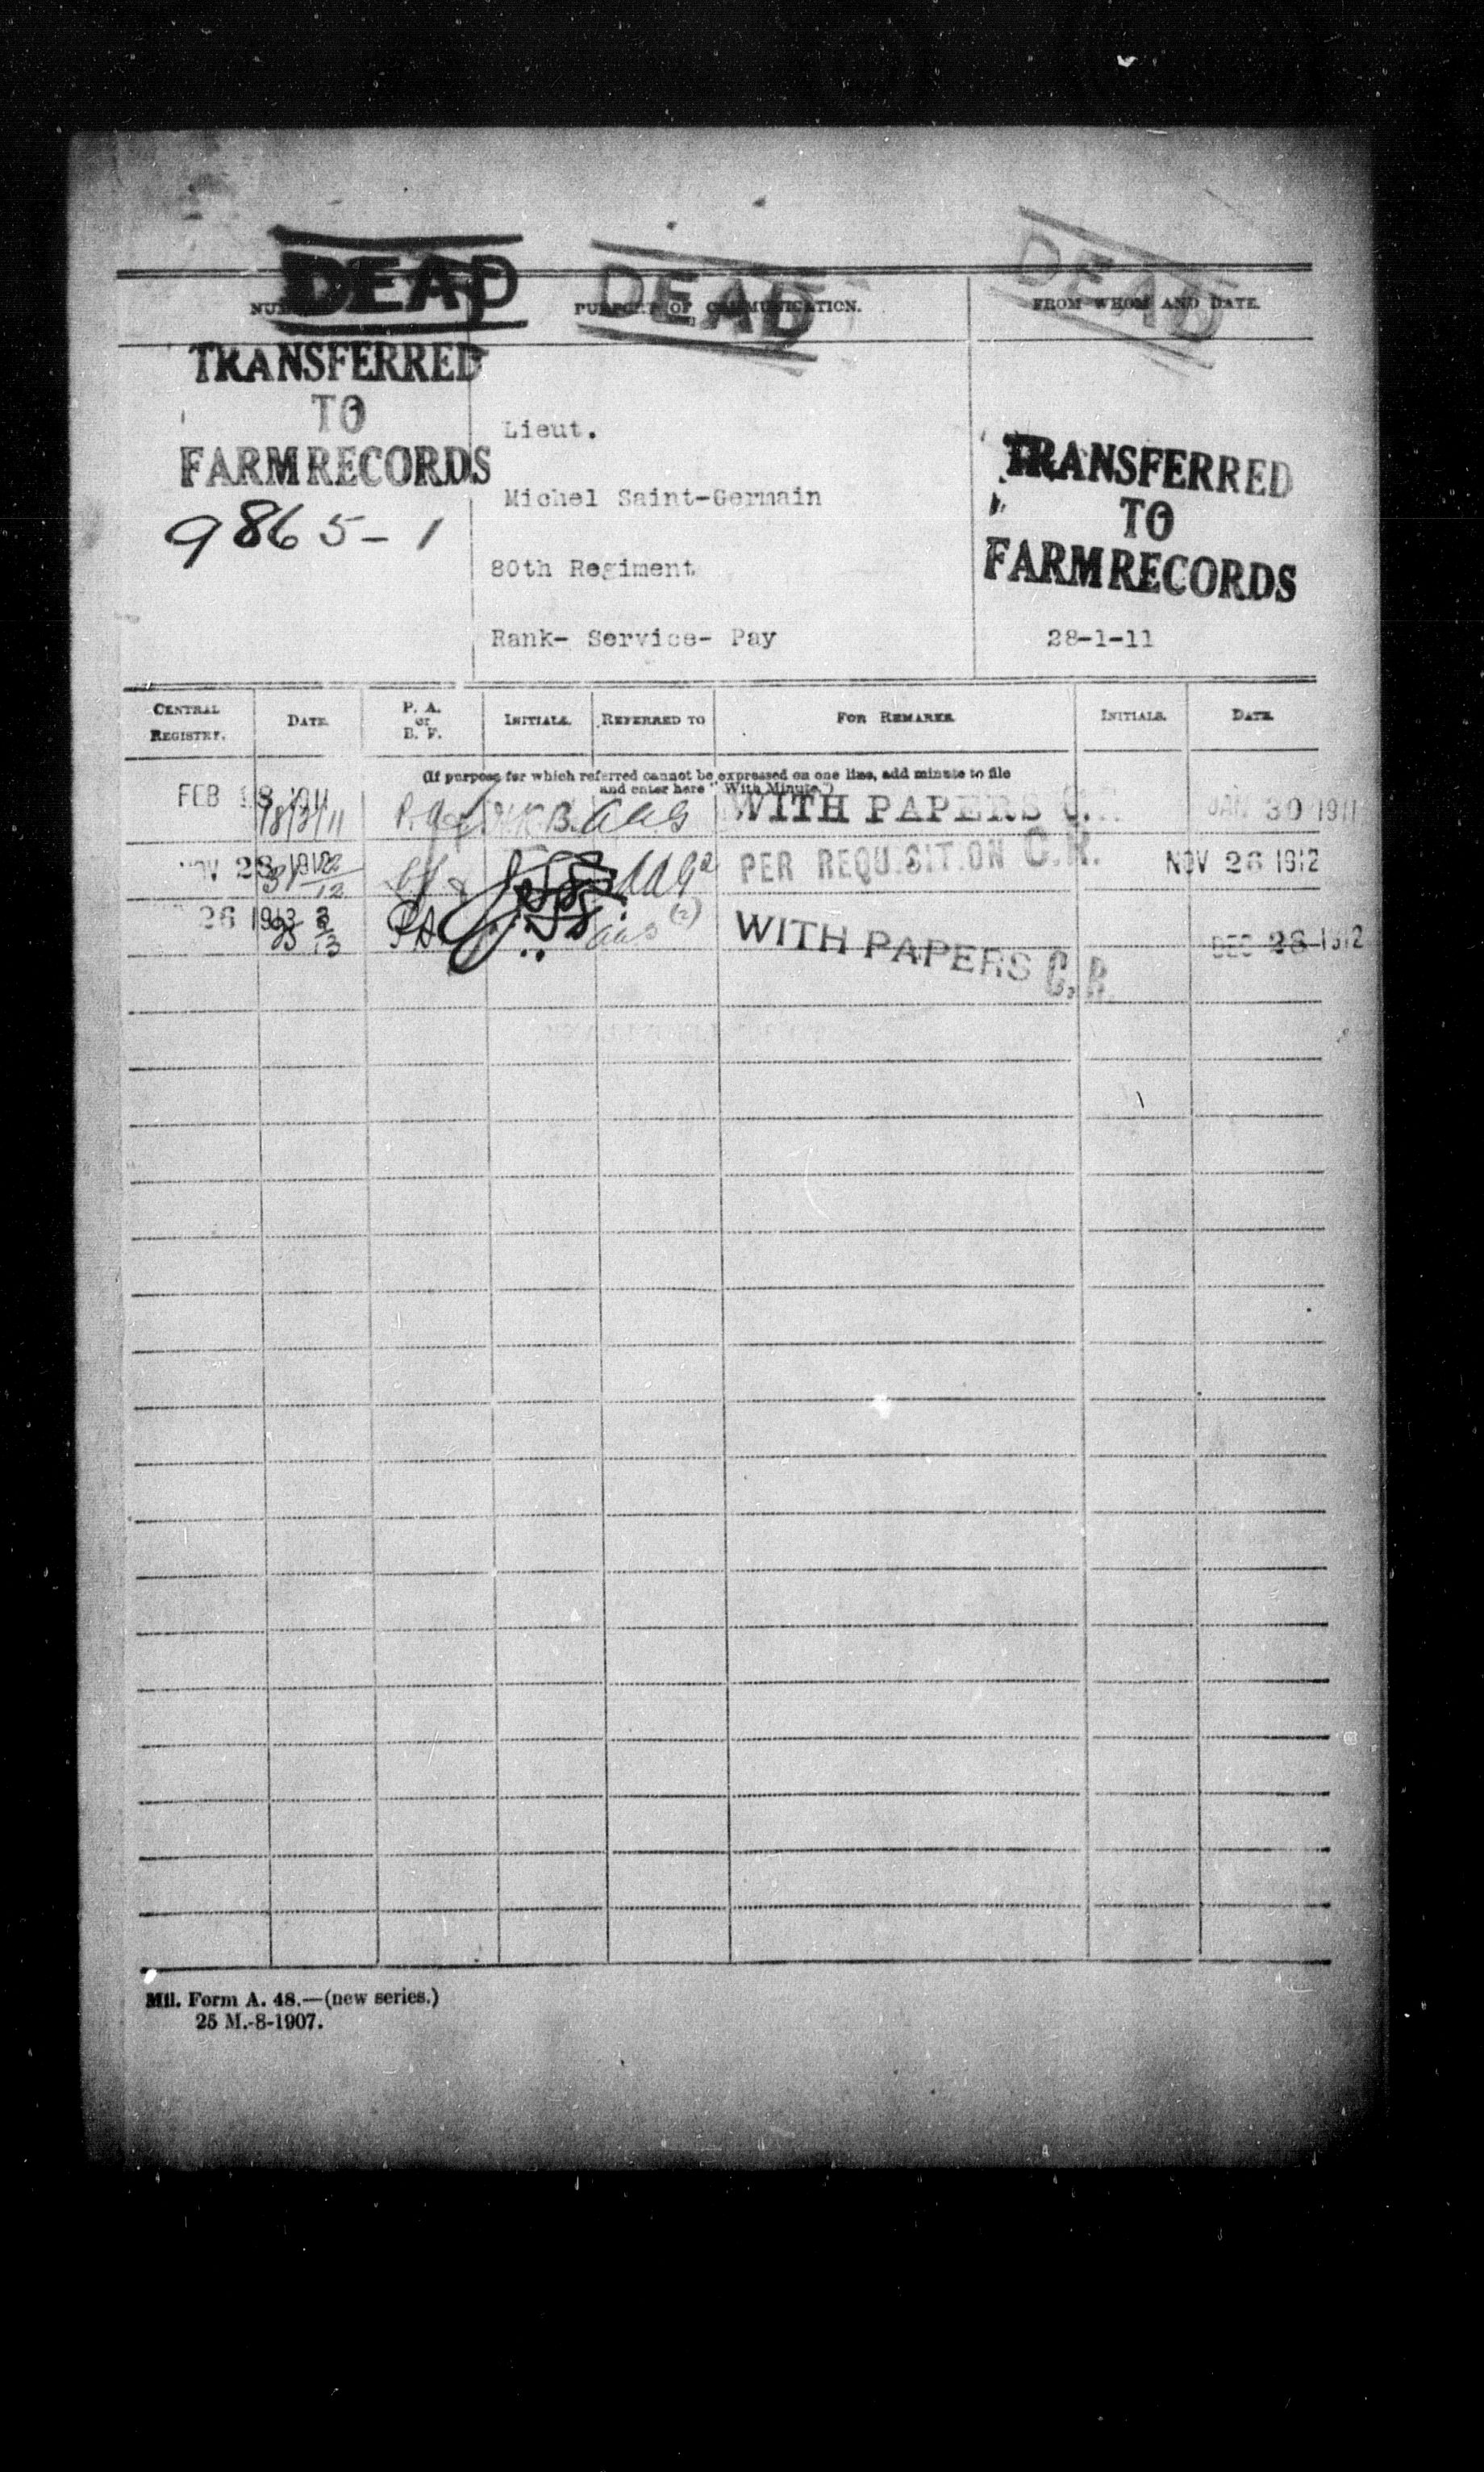 DEAD DEAD DEAD
PURPORT OF COMMUNICATION. FROM WHOM AND DATE.
TRANSFERRED
TO
FARM RECORDS
9865-1
Lieut.
Michel Saint-Germain
80th Regiment
Rank- Service- Pay
TRANSFERRED
TO
FARM RECORDS
28-1-11
CENTRAL REGISTRY. DATE. P. A. or B. F. INITIALS. REFERRED TO FOR REMARKS INITIALS. DATE.
(If purpose for which referred cannot be expressed on one line, add minute to file
and enter here "With Minute.")
FEB 1911 WITH PAPERS C. JAN 30 1911
NOV 1912 PER REQUISITION C.R. NOV 26 1912
26 1913 PA WITH PAPERS C.R. DEC 28 1912
Mil. Form A. 48.—(new series.)
25 M.-8-1907.